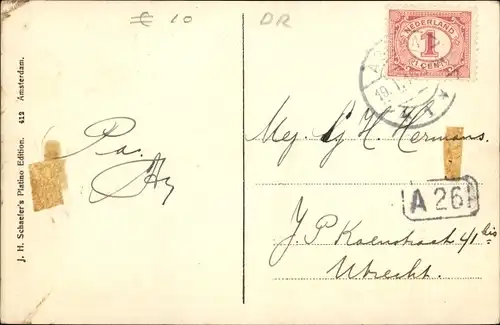 € 10
DR
NEDERLAND
1
1 CENT
19.1
J. H. Schaefer's Platino Edition. 412 Amsterdam.
Pa.
Mej. H. Hermans.
A 26
J P Koenstraat 4/1 bis
Utrecht.